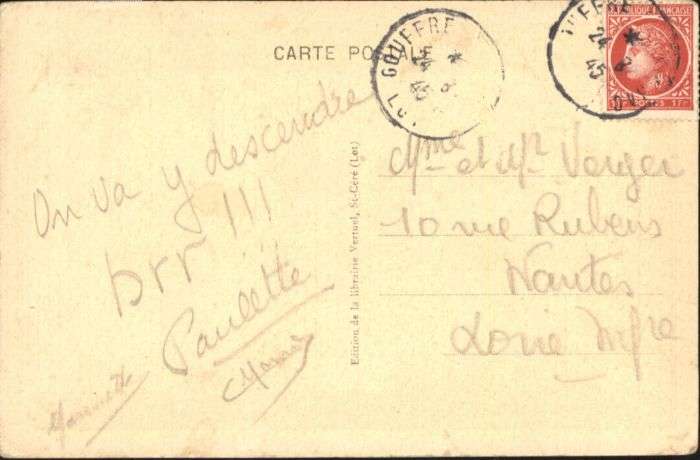 CARTE POSTALE
GOUFFRE
LOT
RÉPUBLIQUE FRANÇAISE
1F POSTES 1F
On va y descendre
brr !!!
Paulette
Edition de la librairie Vertuel, St-Céré (Lot)
Mme et Mr Verger
10 rue Rubens
Nantes
Loire Infre